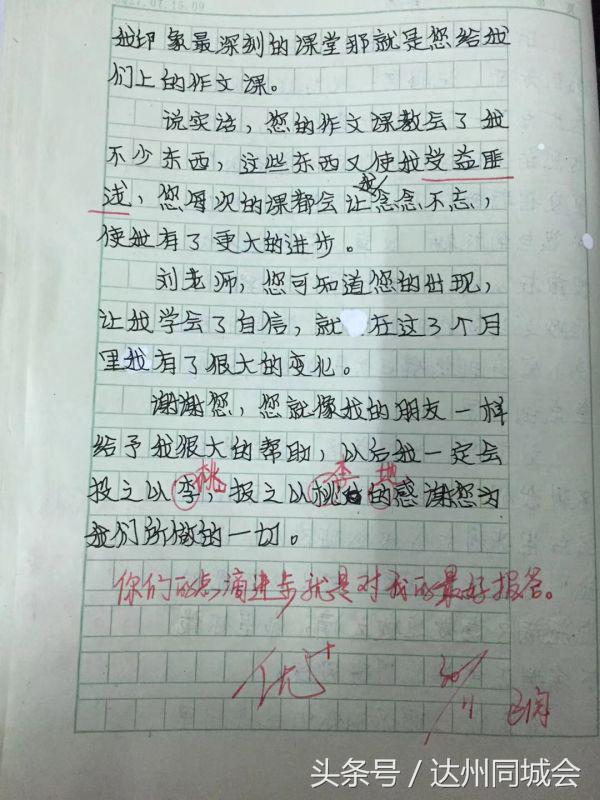 我印象最深刻的课堂那就是您给我
们上的作文课。
说实话，您的作文课教会了我
不少东西，这些东西又使我受益匪
浅，您每次的课都会让我念念不忘，
使我有了更大的进步。
刘老师，您可知道您的出现，
让我学会了自信，就 在这3个月
里我有了很大的变化。
谢谢您，您就像我的朋友一样
给予我很大的帮助，以后我一定会
桃 李 地
投之以李，报之以桃 的感谢您为
我们所做的一切。
你们的点滴进步就是对我的最好报答。
优+
30/11
头条号/达州同城会